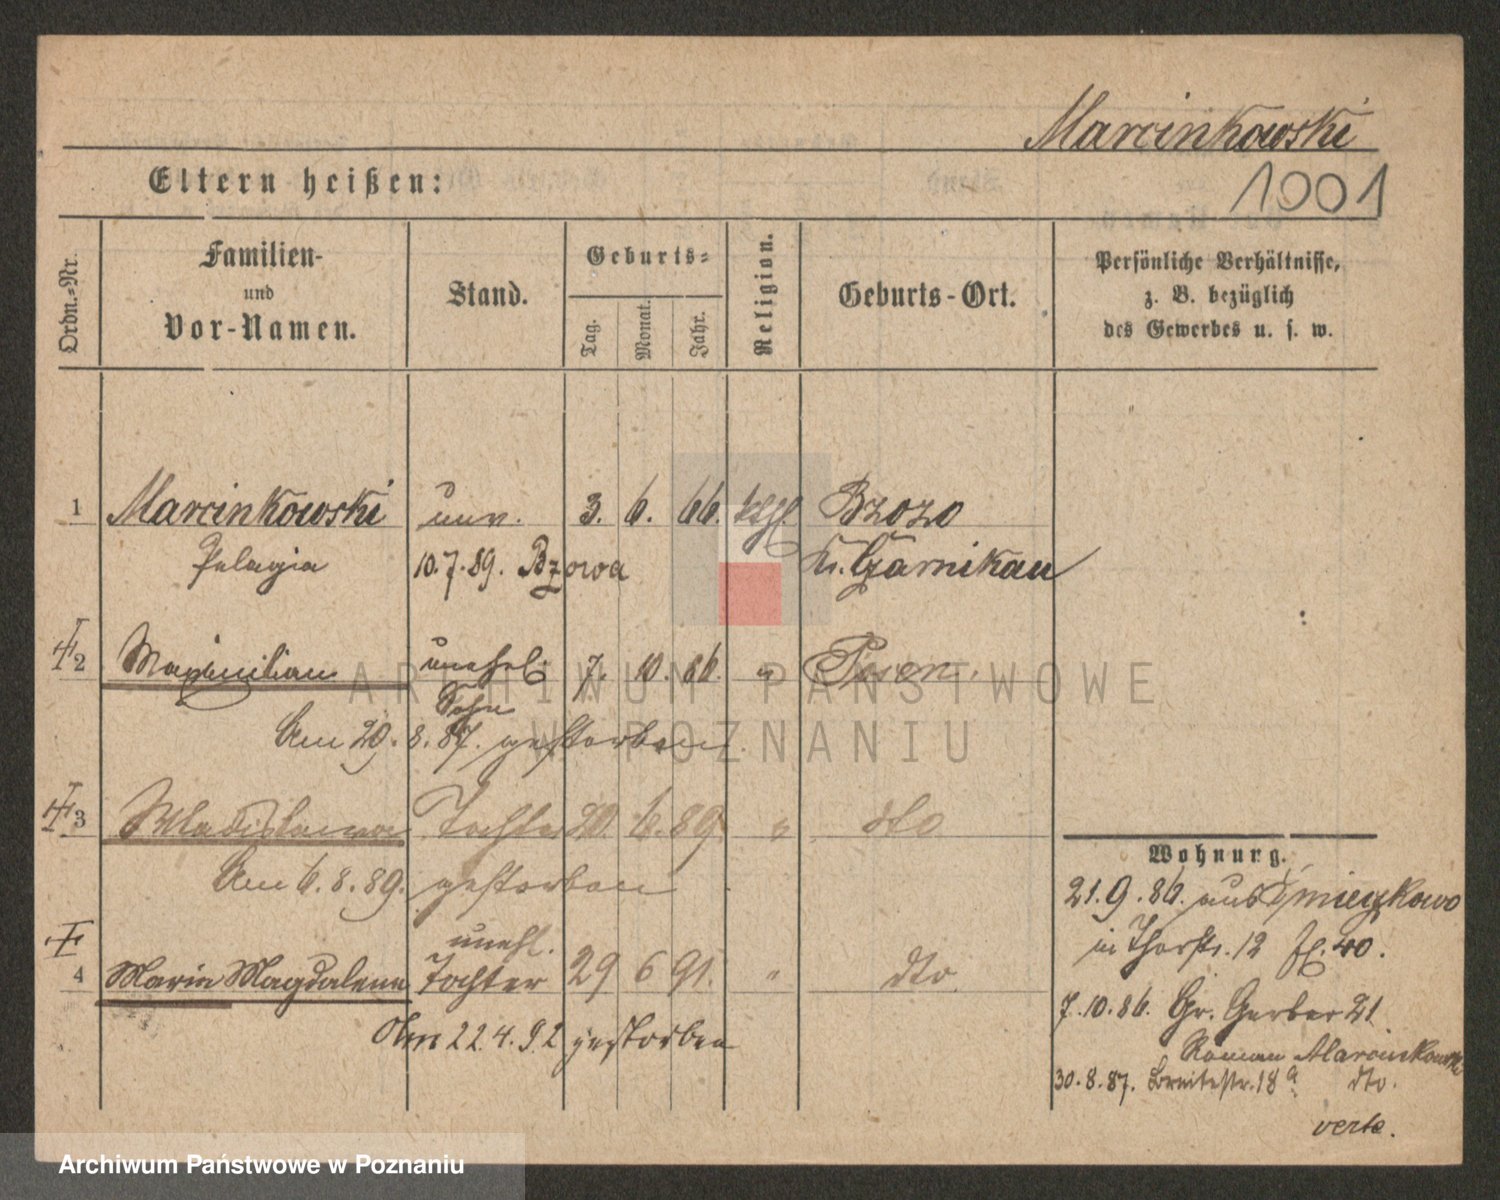 Marcinkowski
Eltern heißen:
1001
Ordn.-Nr.
Familien-
und
Vor-Namen.
Stand.
Geburts-
Tag.
Monat.
Jahr.
Religion.
Geburts-Ort.
Persönliche Verhältnisse,
z. B. bezüglich
des Gewerbes u. s. w.
1 Marcinkowski unv. 3. 6. 66. kthl. Bzozo
Pelagia 10.7.89. Bzowa Kr. Czarnikau
2 Maximilian unehel. 7. 10. 86. " Posen.
Sohn
Am 29.8.87. gestorben.
3 Wladislawa Tochter 20. 6. 89. " dto
Am 6.8.89. gestorben
unehl.
4 Maria Magdalena Tochter 29 6 91. " dto.
Am 22.4.92 gestorben
Wohnung.
21.9.86. aus
in Thorstr. 12 40.
7.10.86. Gr. Gerber 21
Roman Marcinkowski
30.8.87. Breitestr. 18a dto.
verte.
ARCHIWUM PAŃSTWOWE
W POZNANIU
Archiwum Państwowe w Poznaniu